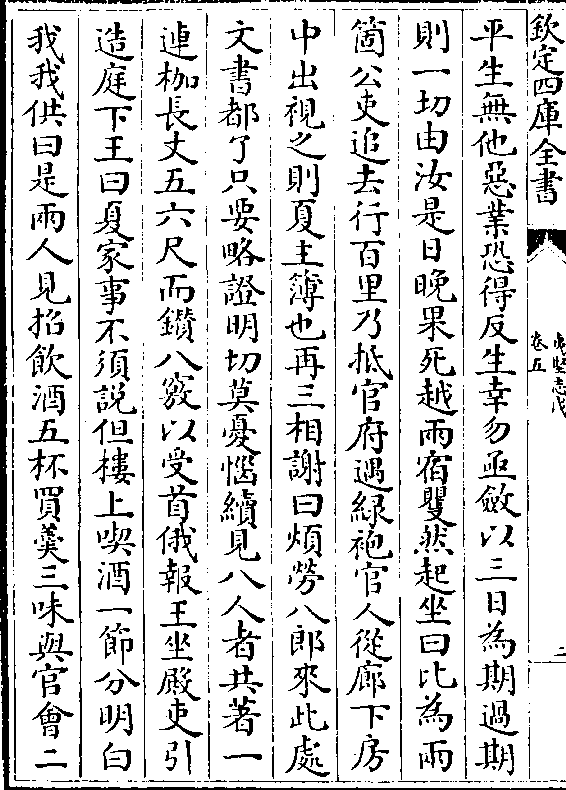 欽定四庫全書
夷堅志戊
卷五
二
平生無他惡業恐得反生幸勿亟斂以三日為期過期
則一切由汝是日晚果死越兩宿矍然起坐曰比為兩
箇公吏追去行百里乃抵官府遇緑袍官人從廊下房
中出視之則夏主簿也再三相謝曰煩勞八郎來此處
文書都了只要略證明切莫憂惱續見八人者共著一
連枷長丈五六尺而鑽八竅以受首俄報王坐殿吏引
造庭下王曰夏家事不須説但樓上喫酒一節分明白
我我供曰是兩人見招飲酒五杯買羹三味與官會二